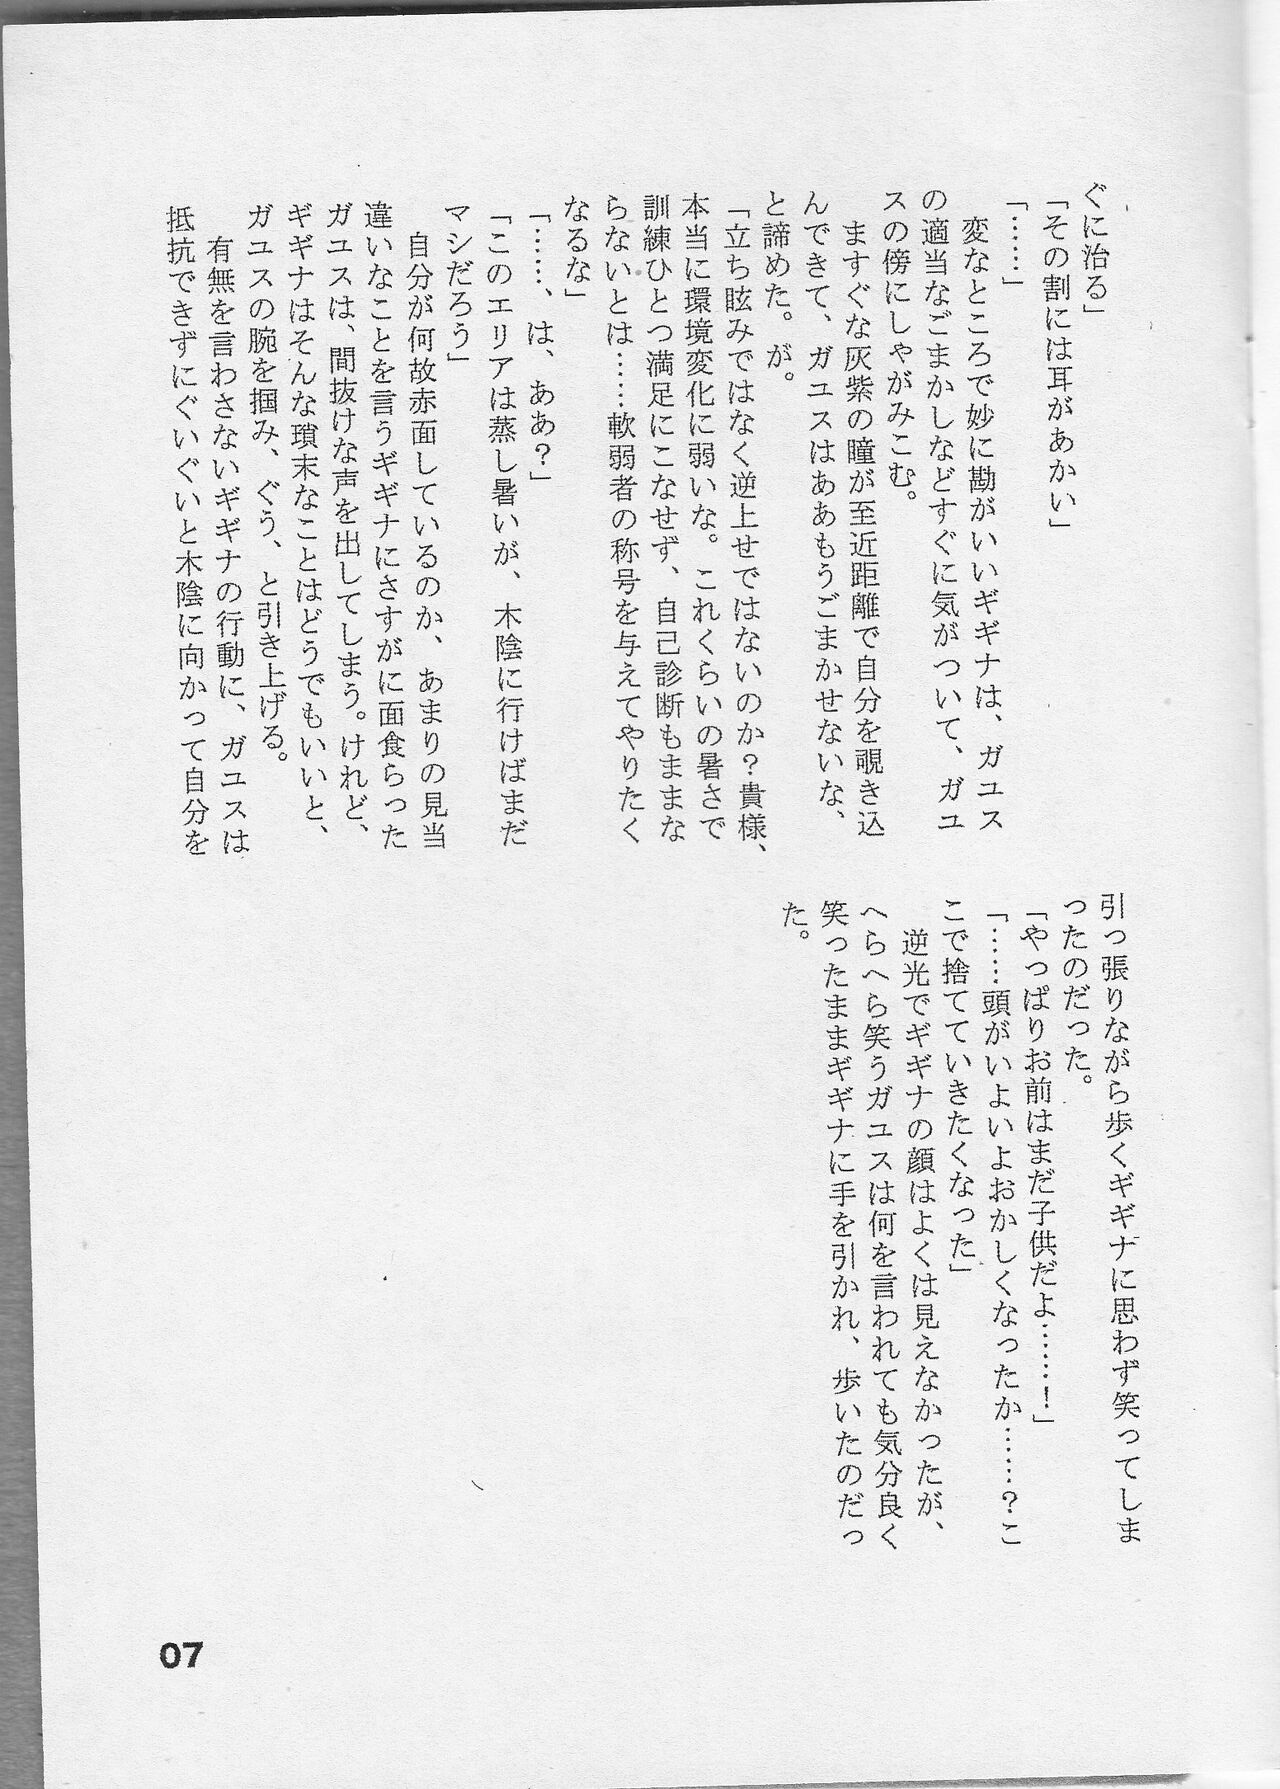 ぐに治る」
「その割には耳があかい」
「……」
　変なところで妙に勘がいいギギナは、ガユス
の適当なごまかしなどすぐに気がついて、ガユ
スの傍にしゃがみこむ。
　ますぐな灰紫の瞳が至近距離で自分を覗き込
んできて、ガユスはああもうごまかせないな、
と諦めた。が。
「立ち眩みではなく逆上せではないのか？貴様、
本当に環境変化に弱いな。これくらいの暑さで
訓練ひとつ満足にこなせず、自己診断もままな
らないとは……軟弱者の称号を与えてやりたく
なるな」
「……、は、ああ？」
「このエリアは蒸し暑いが、木陰に行けばまだ
マシだろう」
　自分が何故赤面しているのか、あまりの見当
違いなことを言うギギナにさすがに面食らった
ガユスは、間抜けな声を出してしまう。けれど、
ギギナはそんな瑣末なことはどうでもいいと、
ガユスの腕を掴み、ぐう、と引き上げる。
　有無を言わさないギギナの行動に、ガユスは
抵抗できずにぐいぐいと木陰に向かって自分を
引っ張りながら歩くギギナに思わず笑ってしま
ったのだった。
「やっぱりお前はまだ子供だよ……！」
「……頭がいよいよおかしくなったか……？こ
こで捨てていきたくなった」
　逆光でギギナの顔はよくは見えなかったが、
へらへら笑うガユスは何を言われても気分良く
笑ったままギギナに手を引かれ、歩いたのだっ
た。
07